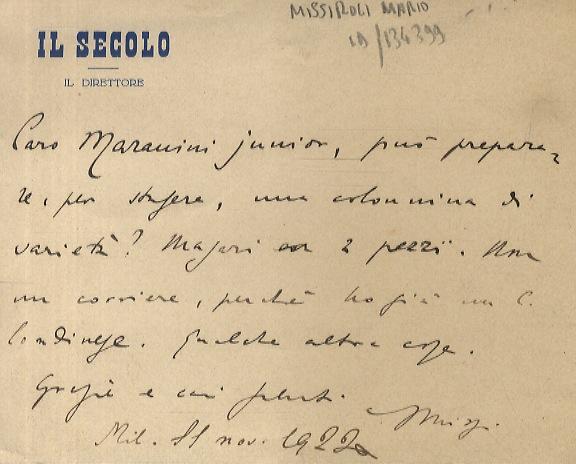 MISSIROLI MARIO
1A/134399
IL SECOLO
IL DIRETTORE
Caro Maranini junior, può prepara=
re, per stasera, una colonnina di
varietà? Magari con 2 pezzi. Non
un corriere, perchè ho già un C.
londinese. Qualche altra cosa.
Grazie e cari saluti.
Mil. 11 nov. 1922